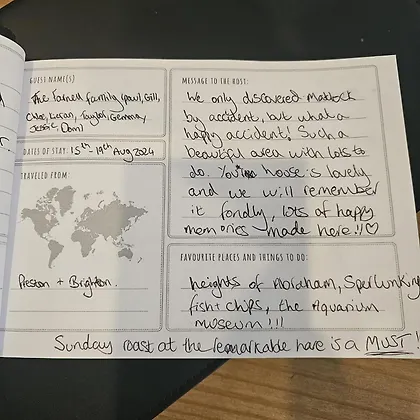 GUEST NAME(S)
The Farnell family (Paul, Gill,
Chloe, Kieran, Taylor, Gemma,
Jessie, Dom)
DATES OF STAY: 15th - 19th Aug 2024
TRAVELED FROM:
Preston + Brighton.
MESSAGE TO THE HOST:
We only discovered Matlock
by accident, but what a
happy accident! Such a
beautiful area with lots to
do. Your house is lovely
and we will remember
it fondly, lots of happy
memories made here!!♡
FAVOURITE PLACES AND THINGS TO DO:
heights of Abraham, Sperlunking
fish + chips, the Aquarium
museum!!!
Sunday roast at the remarkable hare is a MUST!